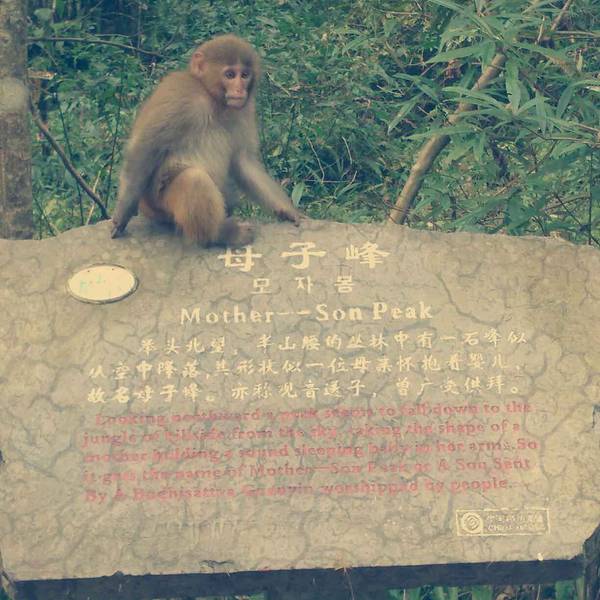 母子峰
모자봉
Mother--Son Peak
举头北望，半山腰的丛林中有一石峰似
从空中降落，其形状似一位母亲怀抱着婴儿，
故名母子峰。亦称观音送子，曾广受供拜。
Looking northward a peak seems to fall down to the
jungle of hillside from the sky, taking the shape of a
mother holding a sound sleeping baby in her arms.So
it gets the name of Mother--Son Peak or A Son Sent
By A Bodhisattva Guanyin worshipped by people.